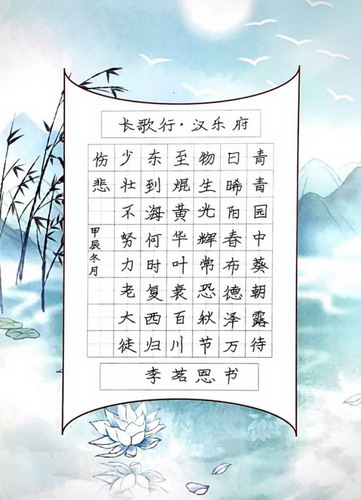 长歌行·汉乐府
青青园中葵朝露待
日晞阳春布德泽万
物生光辉常恐秋节
至焜黄华叶衰百川
东到海何时复西归
少壮不努力老大徒
伤悲
甲辰冬月
李茗恩书